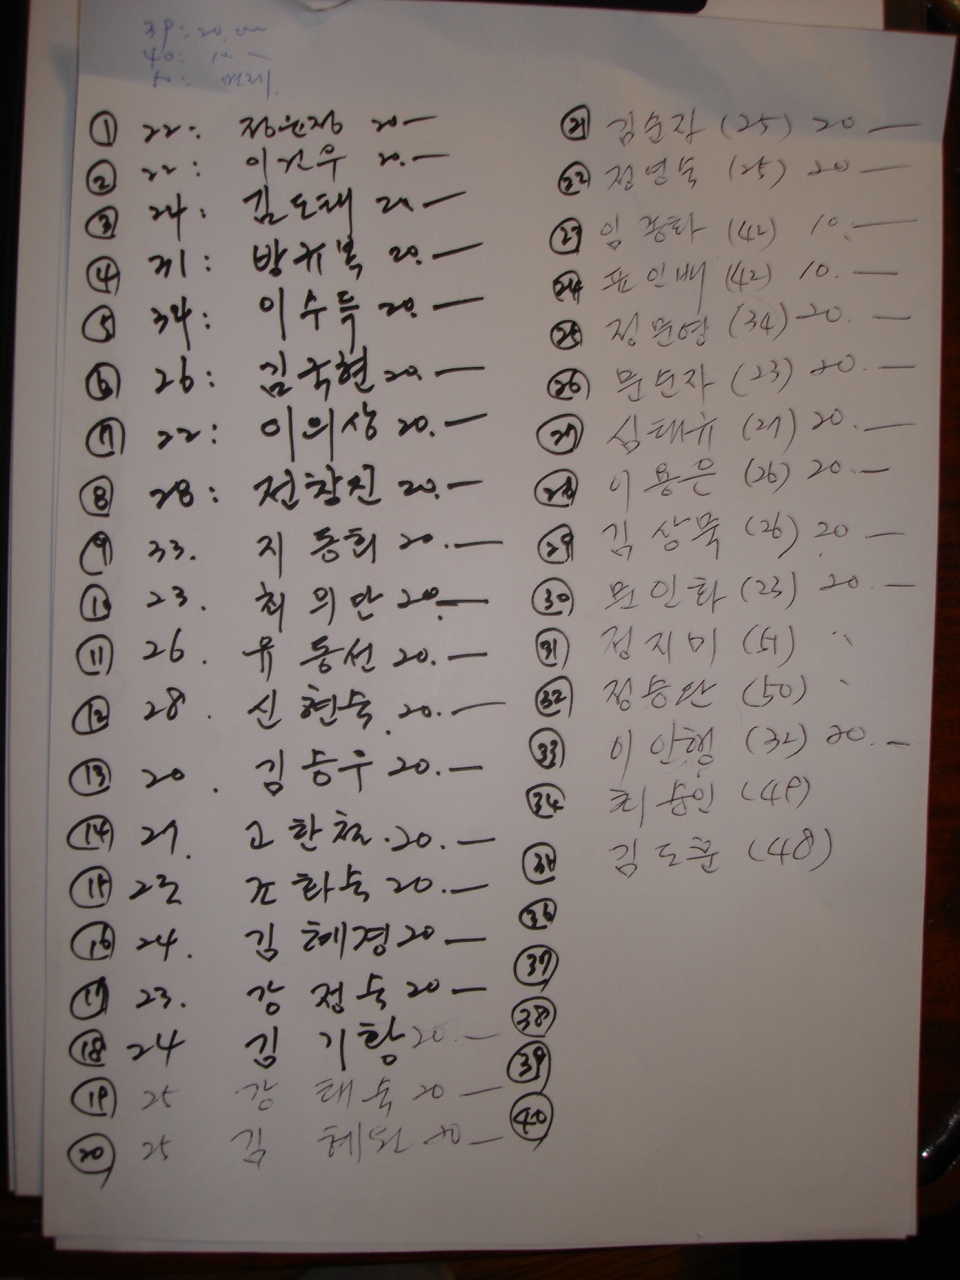 39: 20.00
40: 10.—
50: 면제.
① 22: 정운장 20—
② 22: 이건우 20.—
③ 24: 김도태 20—
④ 21: 방규복 20.—
⑤ 34: 이수득 20.—
⑥ 26: 김국현 20.—
⑦ 22: 이의상 20.—
⑧ 28: 전창진 20.—
⑨ 33. 지동회 20.—
⑩ 23. 최의만 20.—
⑪ 26. 유동선 20.—
⑫ 28. 신현숙 20.—
⑬ 20. 김승우 20.—
⑭ 21. 고한철 20.—
⑮ 23 조화숙 20.—
⑯ 24. 김혜경 20—
⑰ 23. 강정숙 20—
⑱ 24 김기황 20.—
⑲ 25 강태숙 20—
⑳ 25 김혜원 20—
㉑ 김순자 (25) 20—
㉒ 정영숙 (25) 20—
㉓ 임종화 (42) 10.—
㉔ 표인배 (42) 10.—
㉕ 정문영 (34) 20.—
㉖ 문순자 (23) 20.—
㉗ 심태규 (27) 20.—
㉘ 이용은 (26) 20.—
㉙ 김상묵 (26) 20.—
㉚ 문인화 (23) 20.—
㉛ 정지미 (51)
㉜ 정승단 (50)
㉝ 이안행 (32) 20.—
㉞ 최승인 (49)
㉟ 김도훈 (48)
㊱
㊲
㊳
㊴
㊵